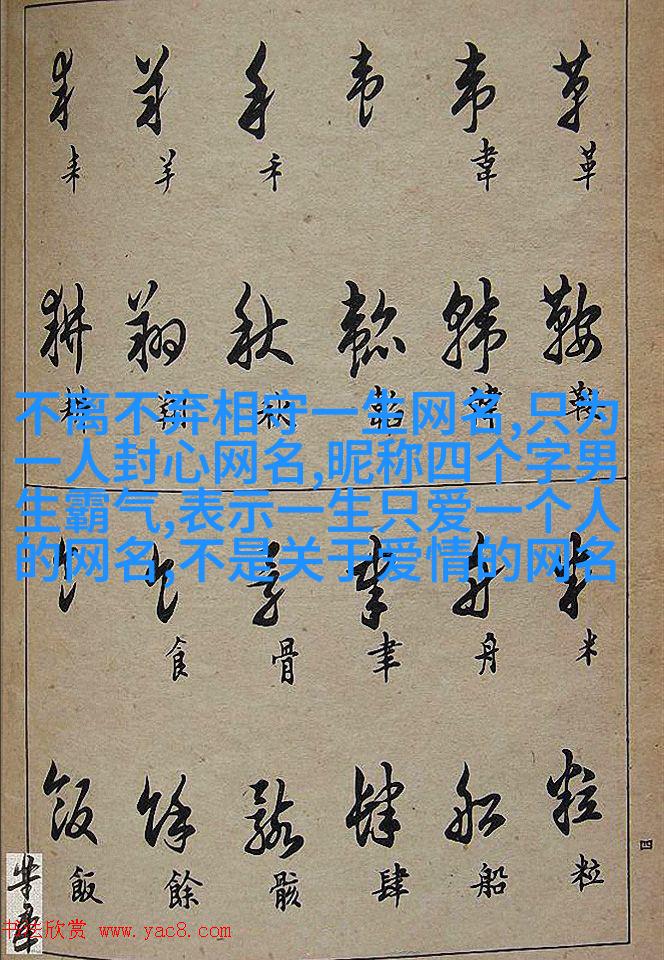 革
韋
禾
羊
耒
鞍
韓
韜
秋
翔
耕
不离不弃相守一生网名,只为
一人封心网名,昵称四个字男
生霸气,表示一生只爱一个人
的网名,不是关于爱情的网名
米
舟
聿
骨
食
粒
船
肆
骸
餘
飯
四
书法欣赏 www.yac8.com